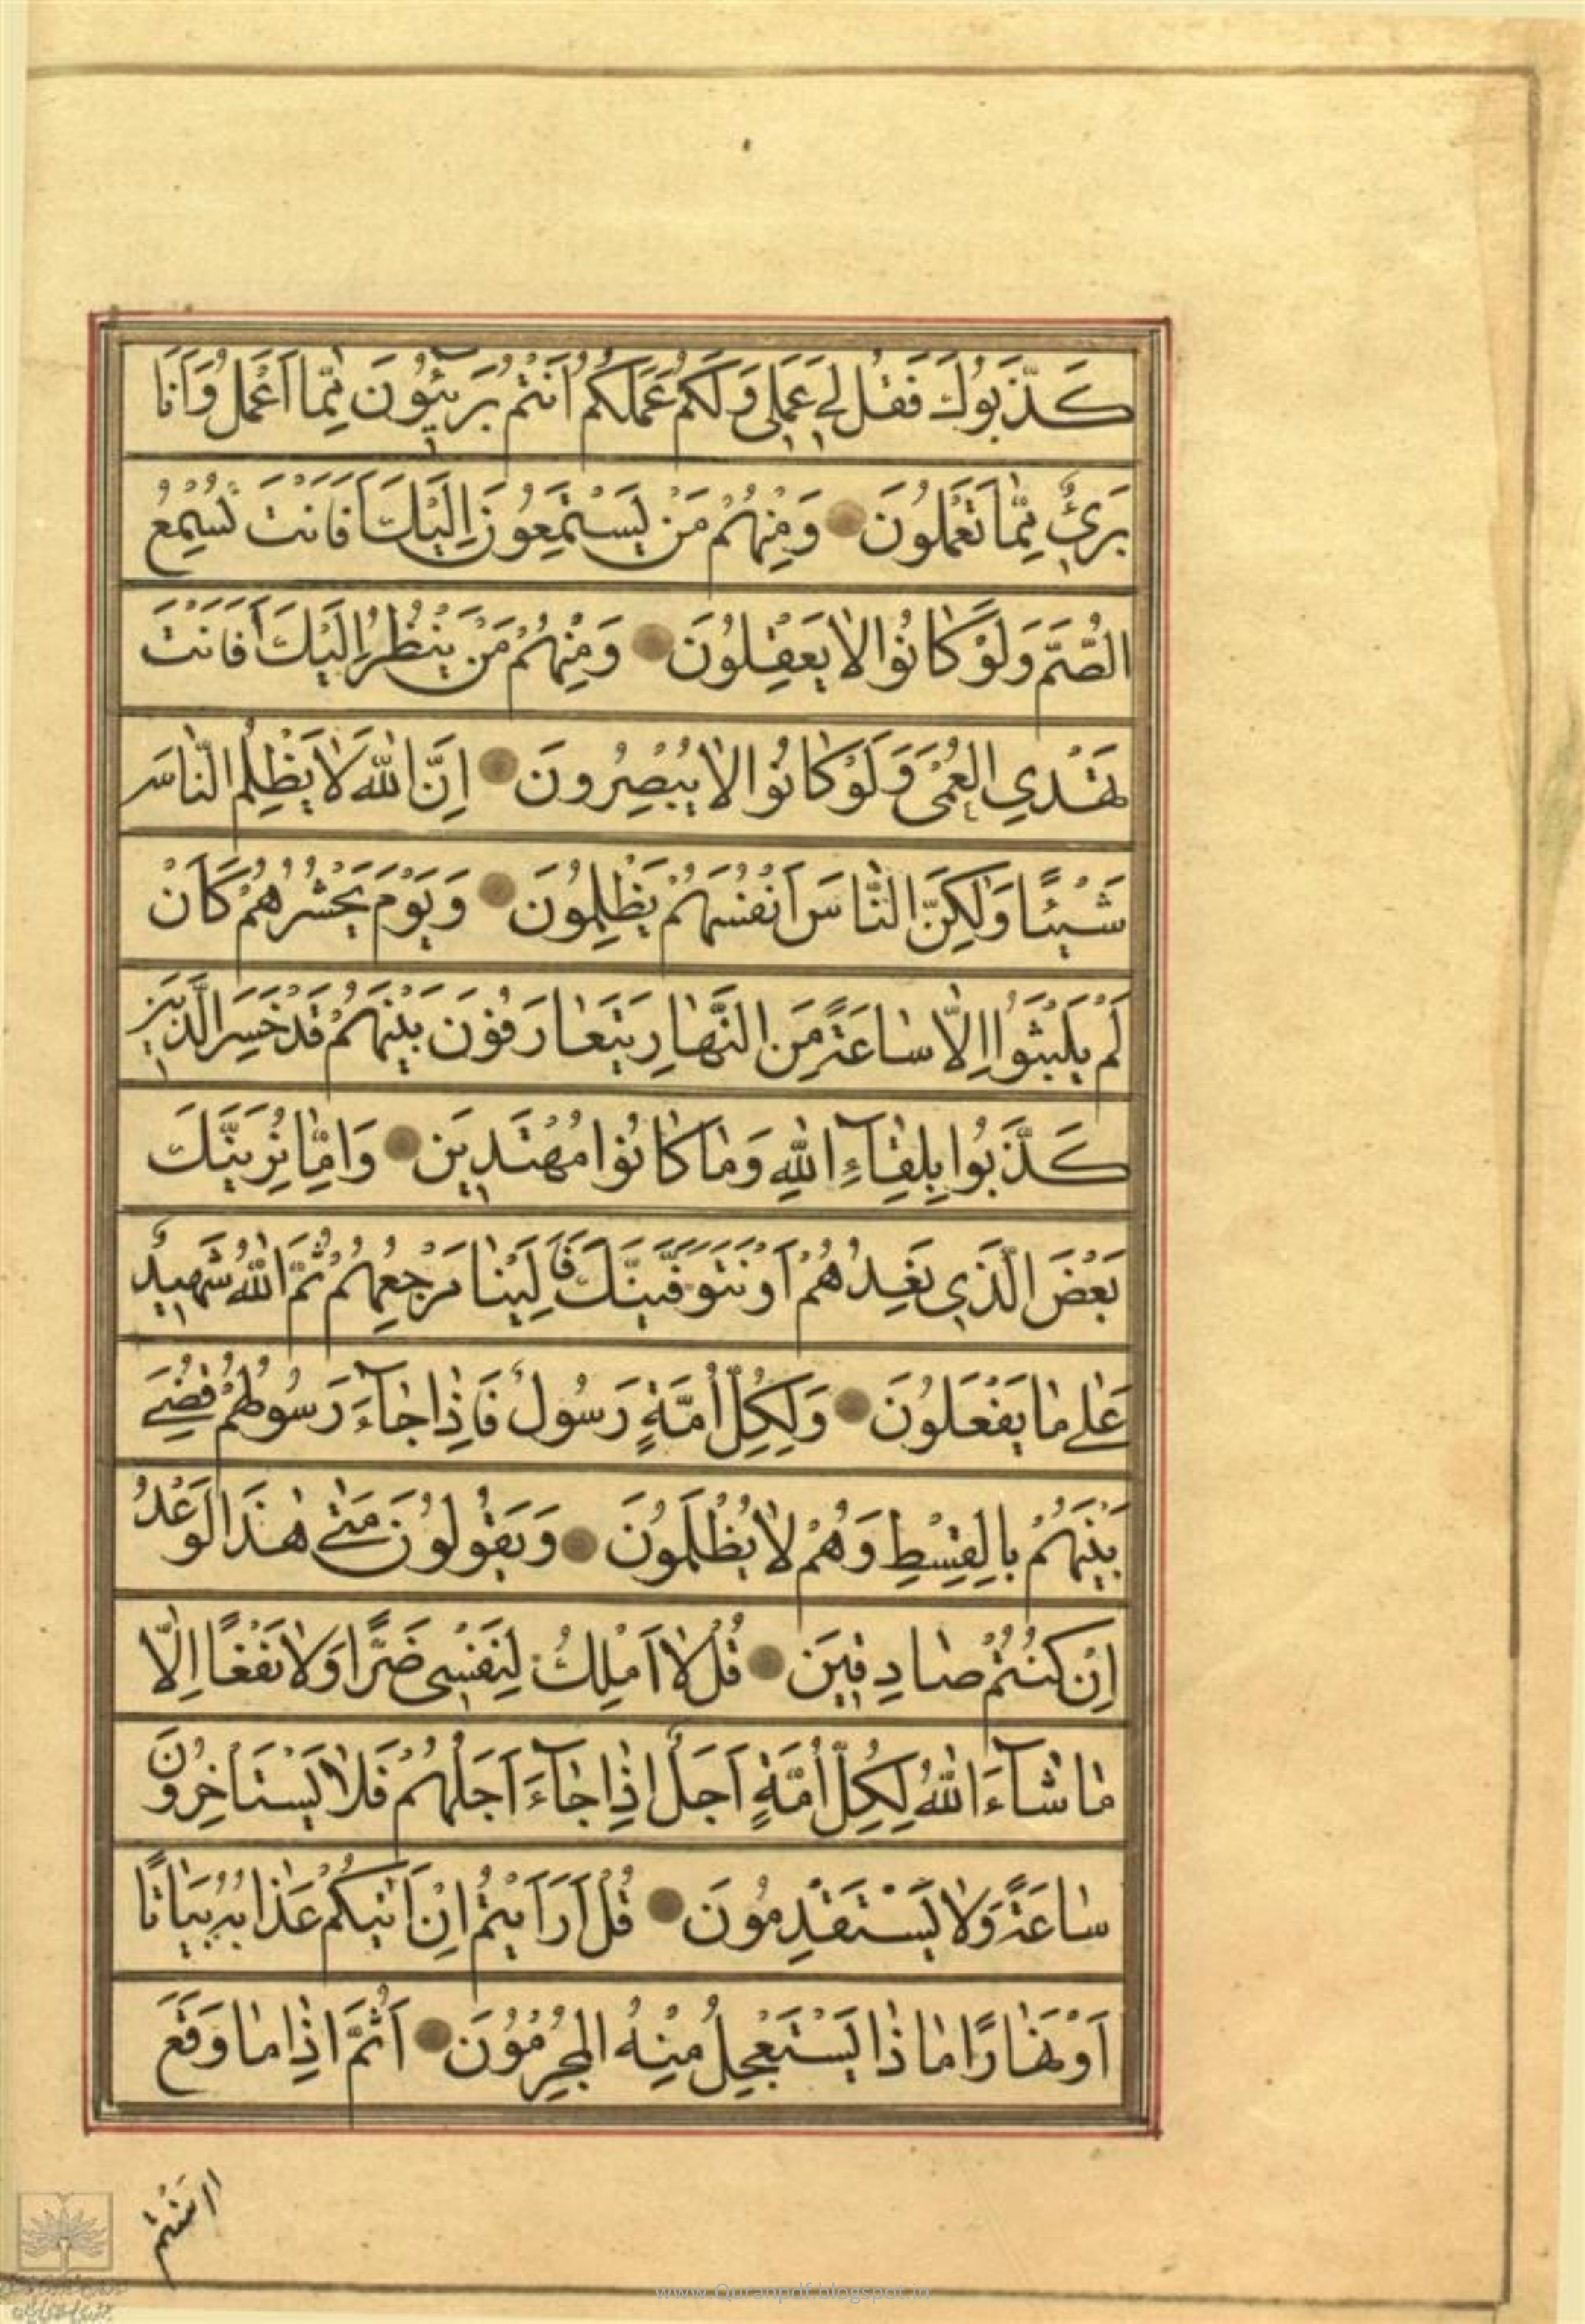 كَذَّبُوكَ فَقُل لِي عَمَلِي وَلَكُمْ عَمَلُكُمْ أَنْتُمْ بَرِيئُونَ مِمَّا أَعْمَلُ وَأَنَا
بَرِيءٌ مِمَّا تَعْمَلُونَ وَمِنْهُمْ مَنْ يَسْتَمِعُونَ إِلَيْكَ أَفَأَنْتَ تُسْمِعُ
الصُّمَّ وَلَوْ كَانُوا لَا يَعْقِلُونَ وَمِنْهُمْ مَنْ يَنْظُرُ إِلَيْكَ أَفَأَنْتَ
تَهْدِي الْعُمْيَ وَلَوْ كَانُوا لَا يُبْصِرُونَ إِنَّ اللَّهَ لَا يَظْلِمُ النَّاسَ
شَيْئًا وَلَكِنَّ النَّاسَ أَنْفُسَهُمْ يَظْلِمُونَ وَيَوْمَ يَحْشُرُهُمْ كَأَنْ
لَمْ يَلْبَثُوا إِلَّا سَاعَةً مِنَ النَّهَارِ يَتَعَارَفُونَ بَيْنَهُمْ قَدْ خَسِرَ الَّذِينَ
كَذَّبُوا بِلِقَاءِ اللَّهِ وَمَا كَانُوا مُهْتَدِينَ وَإِمَّا نُرِيَنَّكَ
بَعْضَ الَّذِي نَعِدُهُمْ أَوْ نَتَوَفَّيَنَّكَ فَإِلَيْنَا مَرْجِعُهُمْ ثُمَّ اللَّهُ شَهِيدٌ
عَلَى مَا يَفْعَلُونَ وَلِكُلِّ أُمَّةٍ رَسُولٌ فَإِذَا جَاءَ رَسُولُهُمْ قُضِيَ
بَيْنَهُمْ بِالْقِسْطِ وَهُمْ لَا يُظْلَمُونَ وَيَقُولُونَ مَتَى هَذَا الْوَعْدُ
إِنْ كُنْتُمْ صَادِقِينَ قُلْ لَا أَمْلِكُ لِنَفْسِي ضَرًّا وَلَا نَفْعًا إِلَّا
مَا شَاءَ اللَّهُ لِكُلِّ أُمَّةٍ أَجَلٌ إِذَا جَاءَ أَجَلُهُمْ فَلَا يَسْتَأْخِرُونَ
سَاعَةً وَلَا يَسْتَقْدِمُونَ قُلْ أَرَأَيْتُمْ إِنْ أَتَيكُمْ عَذَابُهُ بَيَاتًا
أَوْ نَهَارًا مَاذَا يَسْتَعْجِلُ مِنْهُ الْمُجْرِمُونَ أَثُمَّ إِذَا مَا وَقَعَ
امنتم
www.Quranpdf.blogspot.in